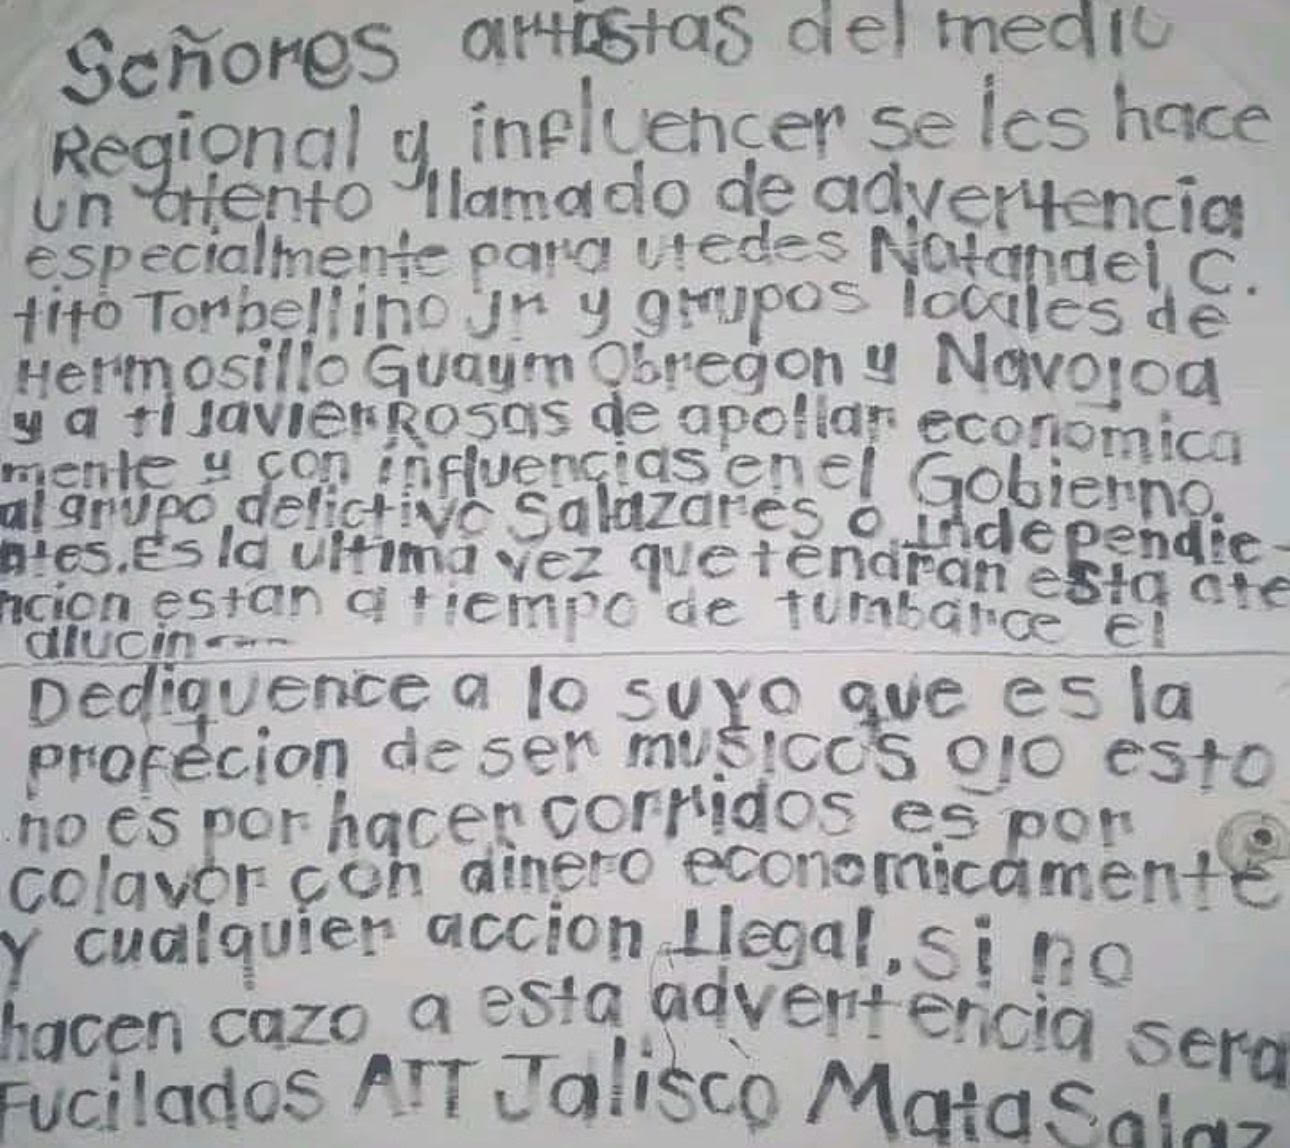 Señores artistas del medio
Regional y influencer se les hace
un atento llamado de advertencia
especialmente para utedes Natanael C.
tito Torbellino jr y grupos locales de
Hermosillo Guaym Obregon y Navojoa
y a ti Javier Rosas de apollar economica
mente y con influencias en el Gobierno.
al grupo delictivo Salazares o Independie-
ntes. Es la ultima vez que tendran esta ate
ncion estan a tiempo de tumbarce el
alucin
Dediquence a lo suyo que es la
profecion de ser musicos ojo esto
no es por hacer corridos es por
colavor con dinero economicamente
y cualquier accion Ilegal, si no
hacen cazo a esta advertencia sera
Fucilados ATT Jalisco Mata Salaz